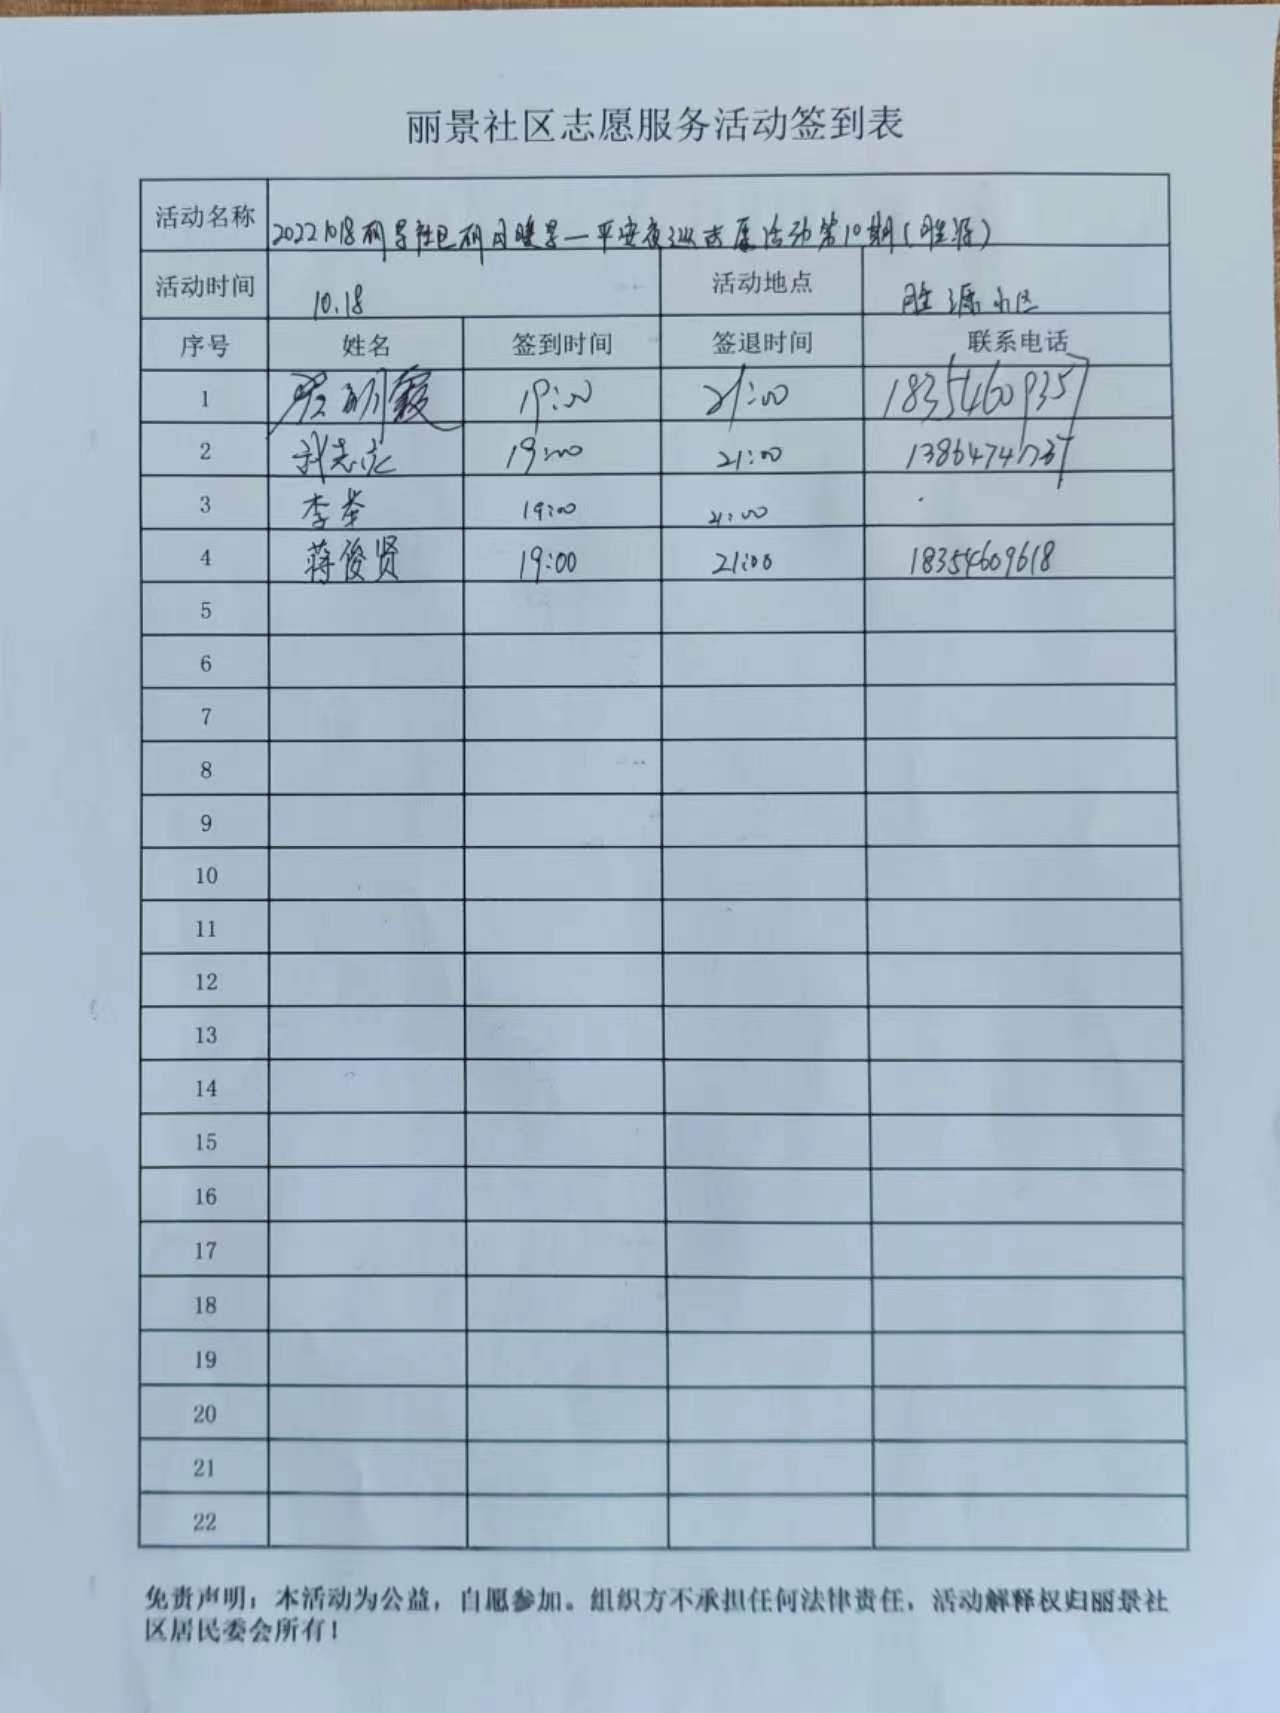 丽景社区志愿服务活动签到表
活动名称 20221018丽景社区丽日暖景—平安夜巡志愿活动第10期(胜源)
活动时间 10.18 活动地点 胜源小区
序号 姓名 签到时间 签退时间 联系电话
1 19:00 21:00 18354609357
2 19:00 21:00
3 李举 19:00 21:00
4 蒋俊贤 19:00 21:00 18354609618
5
6
7
8
9
10
11
12
13
14
15
16
17
18
19
20
21
22
免责声明：本活动为公益，自愿参加。组织方不承担任何法律责任，活动解释权归丽景社
区居民委会所有！